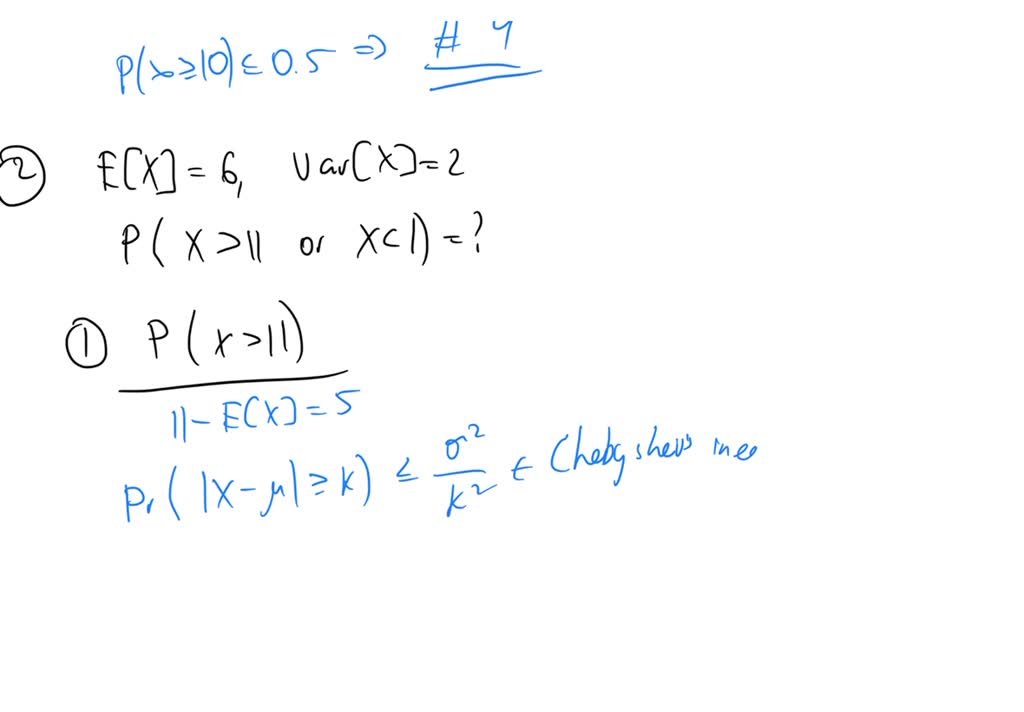 P(x≥10)≤0.5 ⇒ # 4
② E[X]=6, Var[X]=2
P(X>11 or X<1)=?
① P(x>11)
11-E[X]=5
Pr(|X-μ|≥k) ≤ σ²/k² ← Chebyshev's ineq